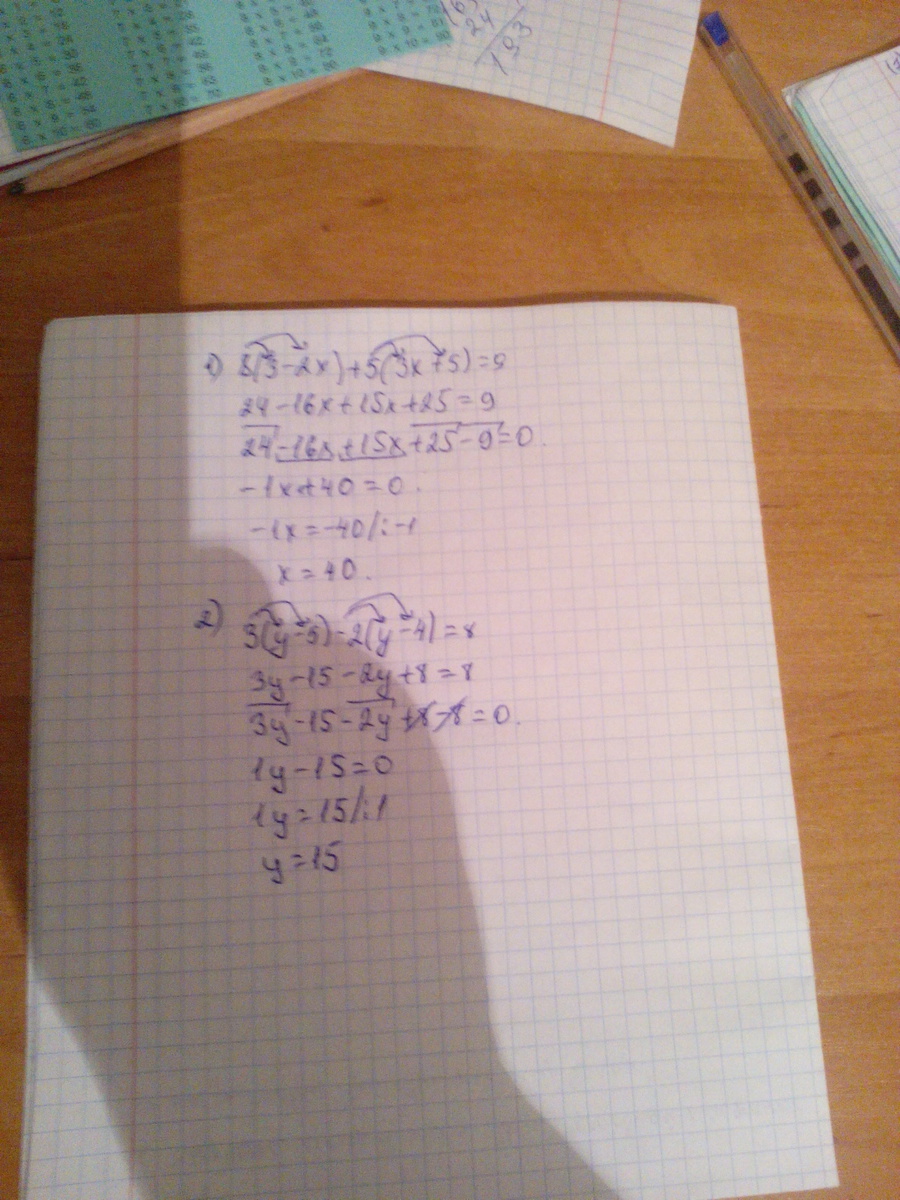 24
193
1) 8(3-2x)+5(3x+5)=9
24-16x+15x+25=9
24-16x+15x+25-9=0.
-1x+40=0.
-1x=-40/:-1
x=40.
2) 3(y-5)-2(y-4)=8
3y-15-2y+8=8
3y-15-2y+8-8=0.
1y-15=0
1y=15/:1
y=15